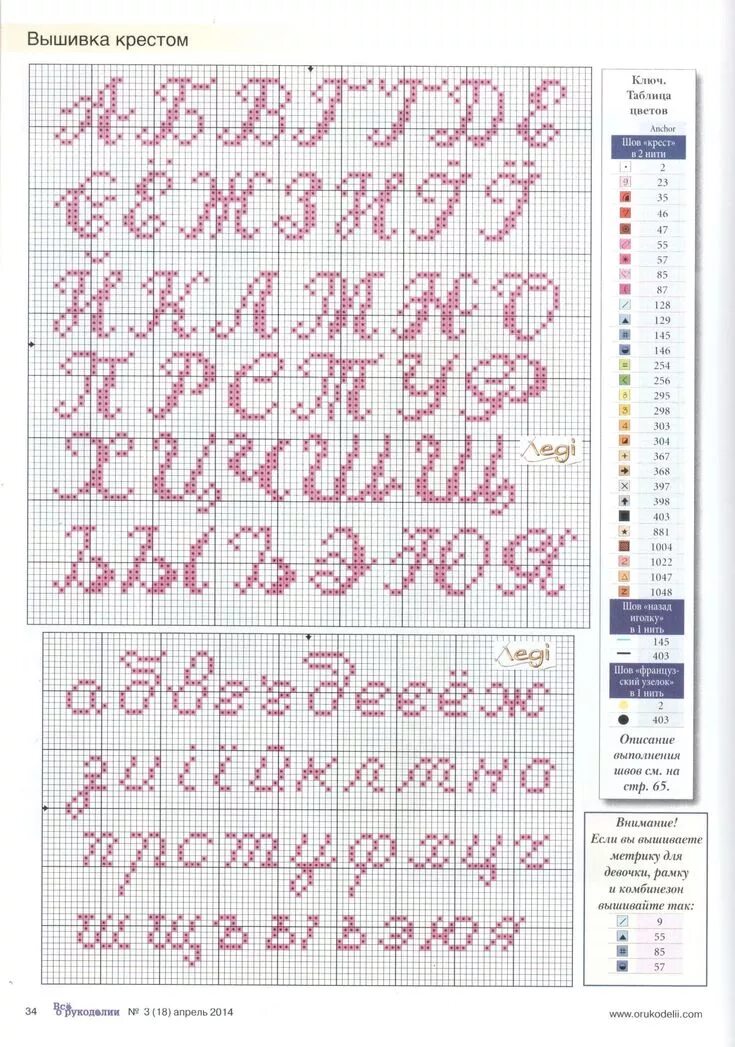 Вышивка крестом
А Б В Г Ґ Д Е
Є Ё Ж З И І Ї
Й К Л М Н О
П Р С Т У Ф
Леді
Х Ц Ч Ш Щ
Ъ Ы Ь Э Ю Я
Леді
а б в г ґ д е є ё ж
з и і ї й к л м н о
п р с т у ф х ц ч
ш щ ъ ы ь э ю я
Ключ.
Таблица
цветов
Anchor
Шов «крест»
в 2 нити
2
23
35
46
47
55
57
85
87
128
129
145
146
254
256
295
298
303
304
367
368
397
398
403
881
1004
1022
1047
1048
Шов «назад
иголку»
в 1 нить
145
403
Шов «француз-
ский узелок»
в 1 нить
2
403
Описание
выполнения
швов см. на
стр. 65.
Внимание!
Если вы вышиваете
метрику для
девочки, рамку
и комбинезон
вышивайте так:
9
55
85
57
34 Всё о рукоделии № 3 (18) апрель 2014
www.orukodelii.com